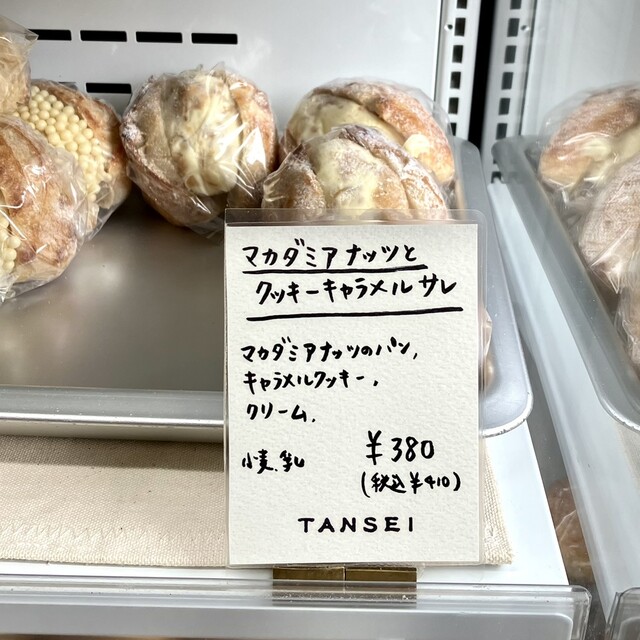 マカダミアナッツと
クッキーキャラメルサレ
マカダミアナッツのパン,
キャラメルクッキー,
クリーム.
小麦.乳
¥380
(税込¥410)
TANSEI